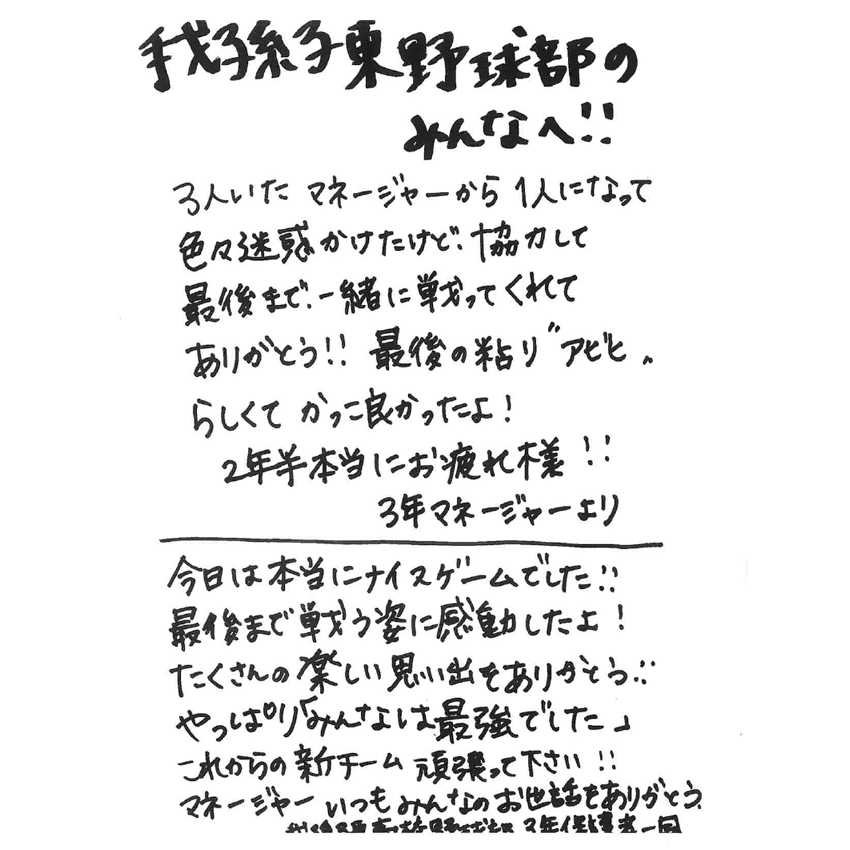 我孫子東野球部の
みんなへ!!
3人いた マネージャーから 1人になって
色々迷惑かけたけど、協力して
最後まで、一緒に戦ってくれて
ありがとう!! 最後の粘り"アビヒ"
らしくて かっこ良かったよ!
2年半本当にお疲れ様!!
3年マネージャーより
今日は本当にナイスゲームでした!!
最後まで戦う姿に感動したよ!
たくさんの楽しい思い出をありがとう!!
やっぱり「みんなは最強でした」
これからの新チーム 頑張って下さい!!
マネージャー いつもみんなのお世話をありがとう
野球部 3年保護者一同